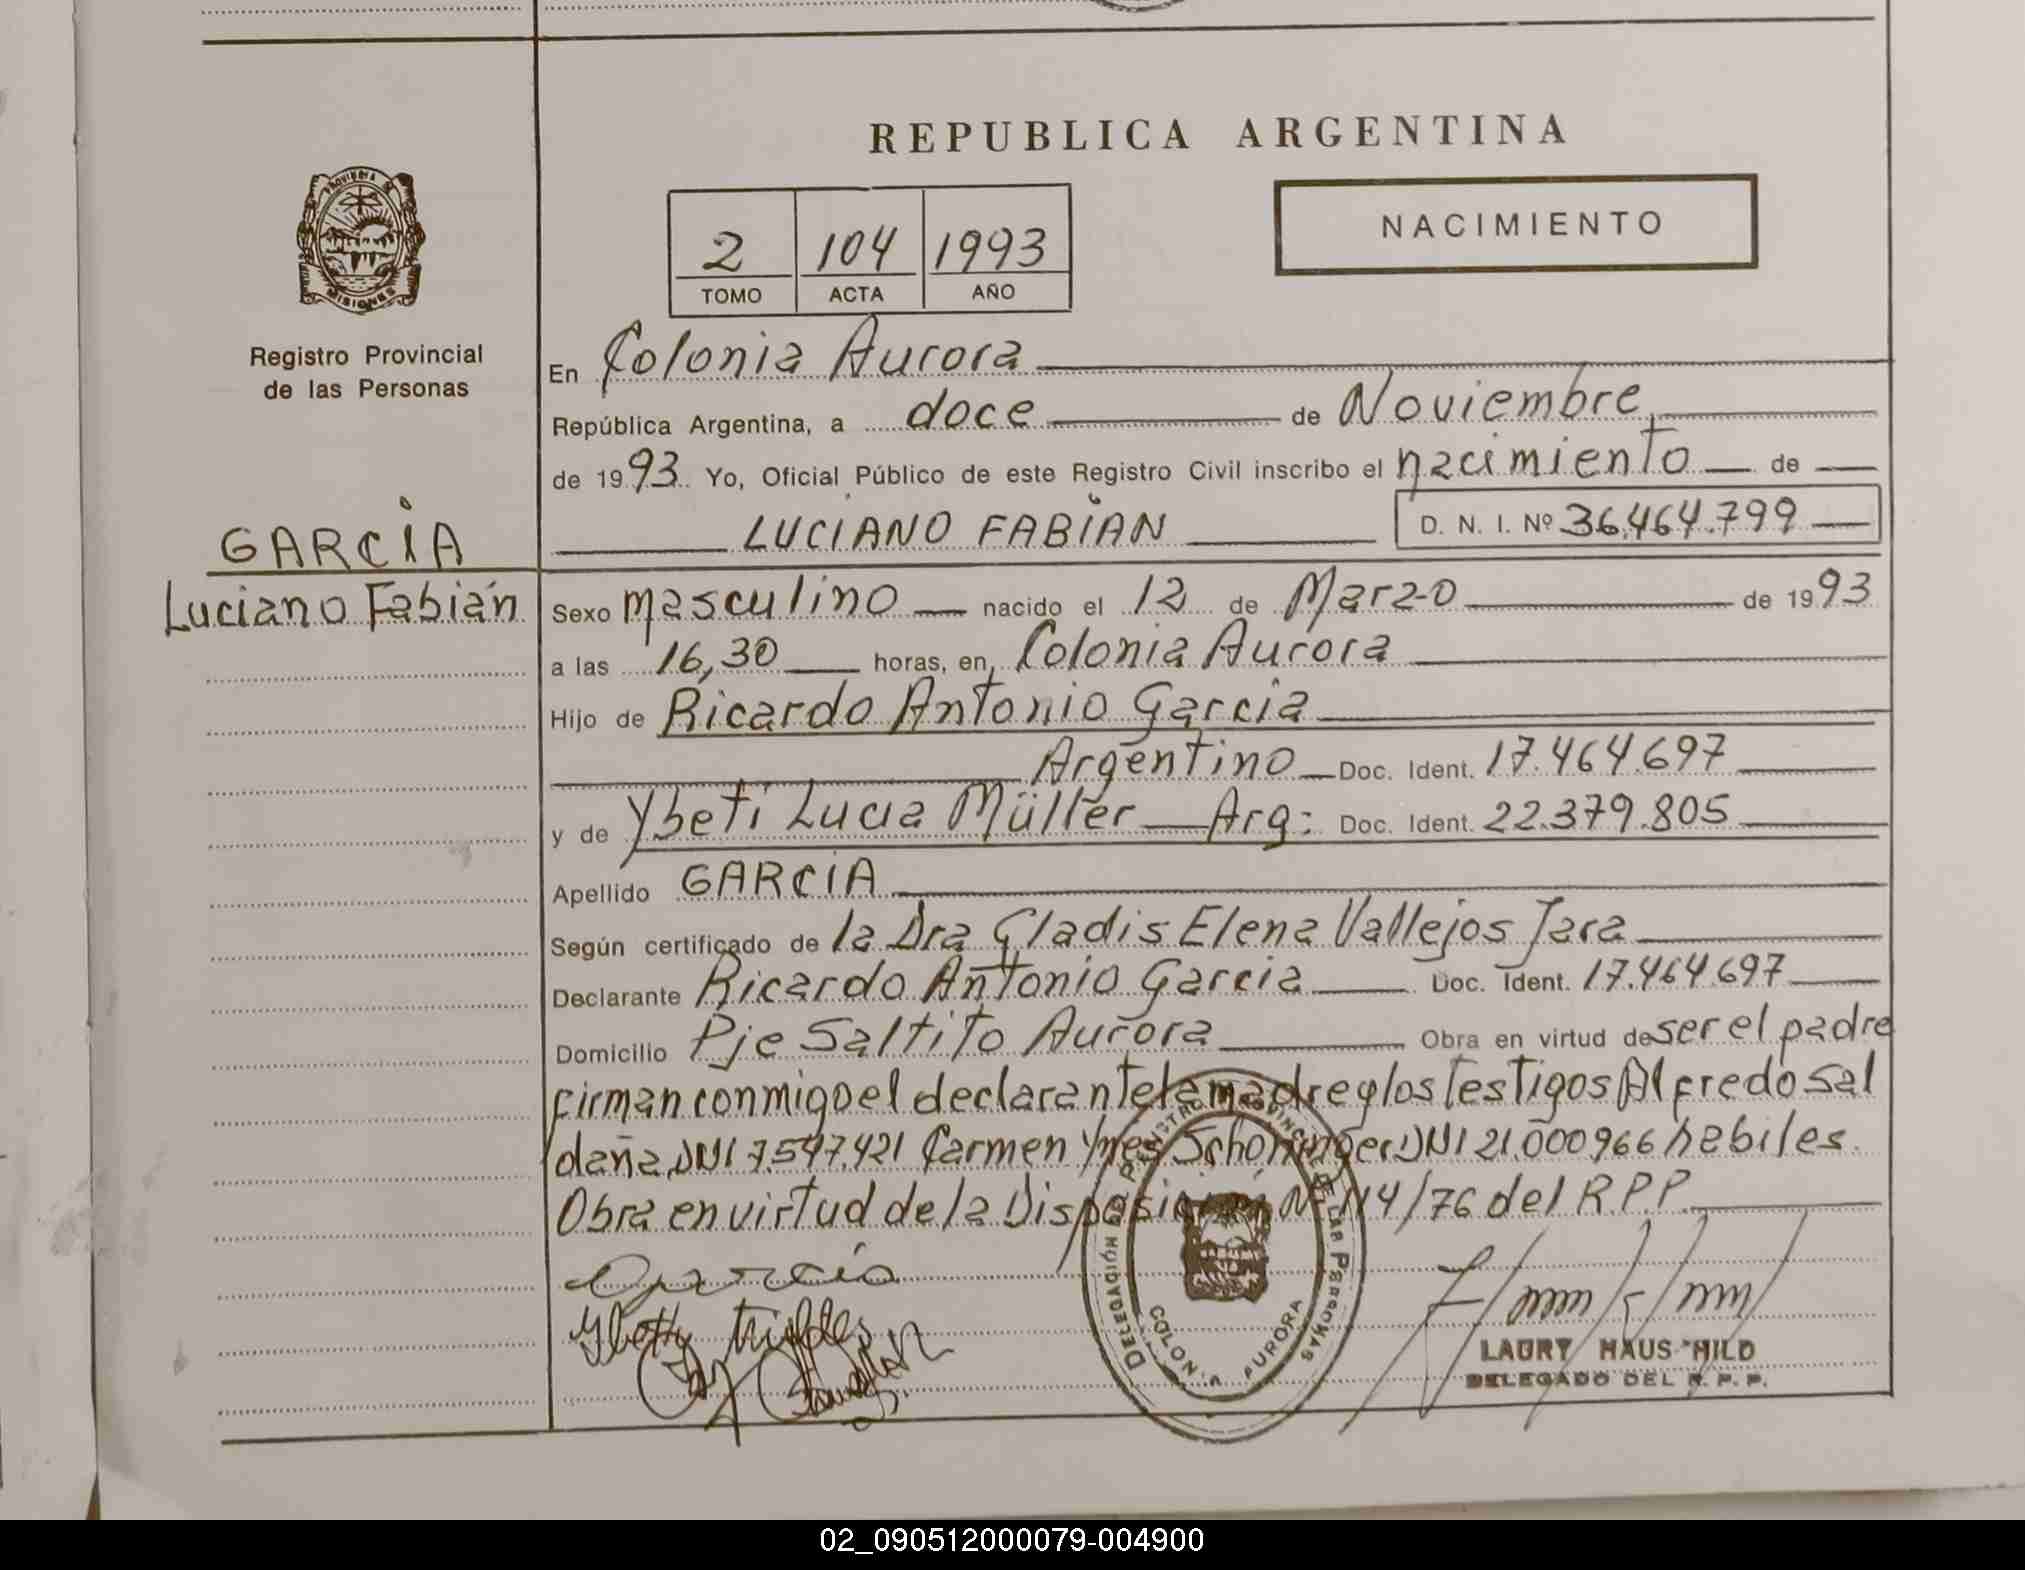 REPUBLICA ARGENTINA
PROVINCIA DE
MISIONES
Registro Provincial
de las Personas
2 104 1993
TOMO ACTA AÑO
NACIMIENTO
En Colonia Aurora
República Argentina, a doce de Noviembre
de 1993 Yo, Oficial Público de este Registro Civil inscribo el nacimiento de
LUCIANO FABIAN D. N. I. Nº 36.464.799
GARCIA
Luciano Fabián
Sexo masculino nacido el 12 de Marzo de 1993
a las 16,30 horas, en Colonia Aurora
Hijo de Ricardo Antonio Garcia
Argentino Doc. Ident. 17.464.697
y de Ybeti Lucia Müller Arg: Doc. Ident. 22.379.805
Apellido GARCIA
Según certificado de la Dra Gladis Elena Vallejos Jara
Declarante Ricardo Antonio Garcia Doc. Ident. 17.464.697
Domicilio Pje Saltito Aurora Obra en virtud de ser el padre
firman conmigo el declarante la madre y los testigos Alfredo Sal
daña DNI 7.547.421 Carmen Ynes Schoninger DNI 21.000966 habiles.
Obra en virtud de la Disposición Nº 114/76 del R.P.P.
REGISTRO PROVINCIAL DE LAS PERSONAS
DELEGACION
COLONIA AURORA
Garcia
LAURY HAUS HILD
DELEGADO DEL R. P. P.
02_090512000079-004900